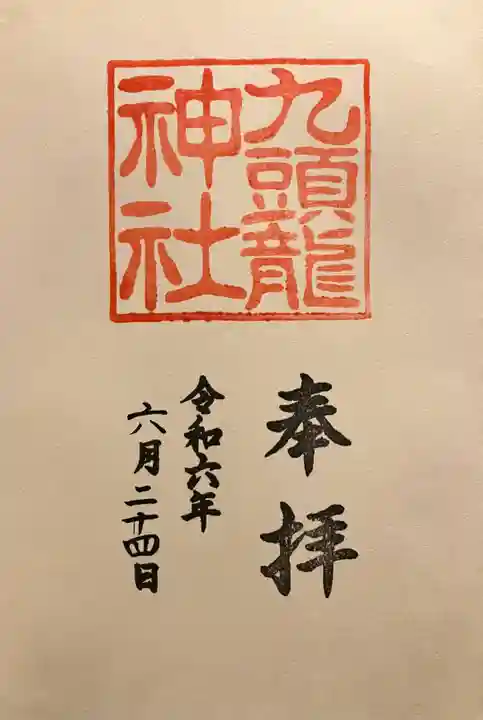 九頭龍
神社
奉拝
令和六年
六月二十四日